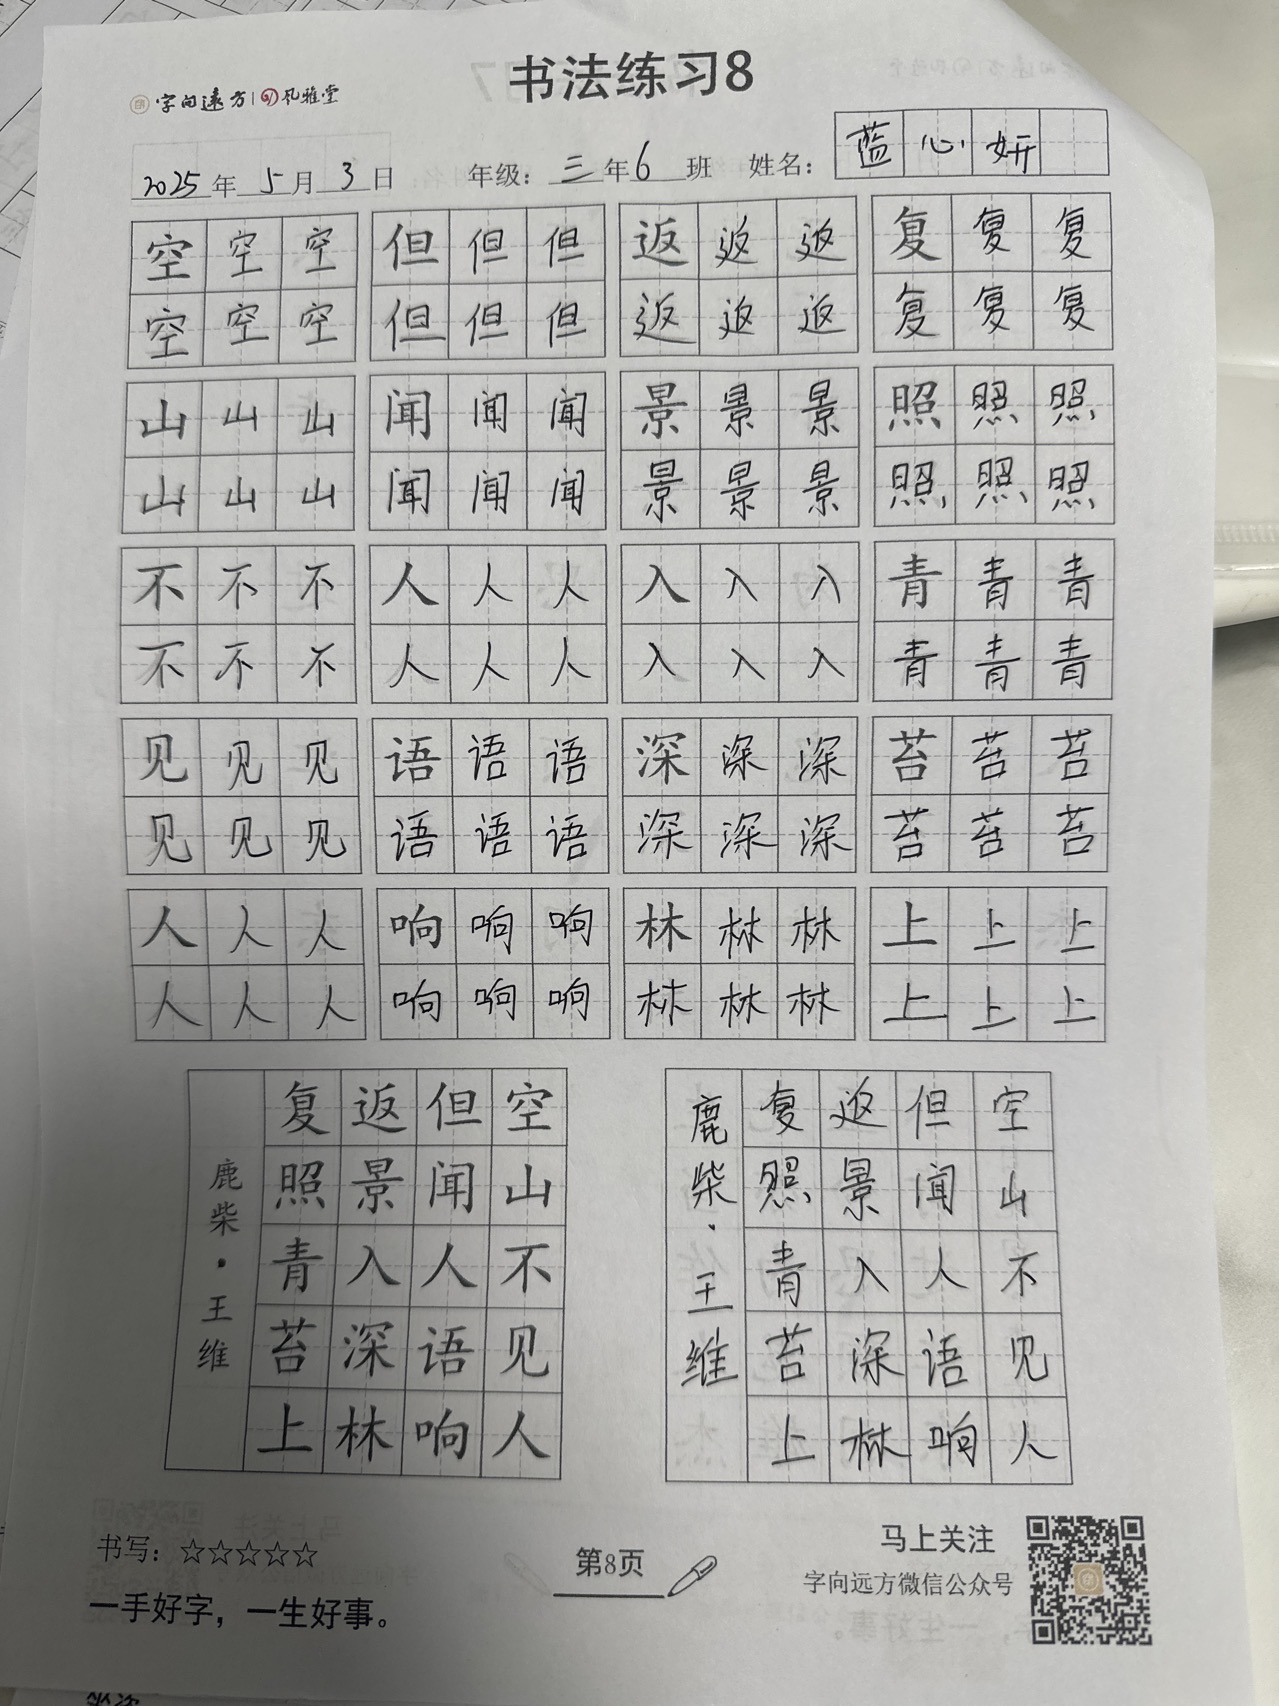 书法练习8
字向远方 风雅堂
2025年5月3日 年级：三年6班 姓名：蓝心妍
空空空 但但但 返返返 复复复
空空空 但但但 返返返 复复复
山山山 闻闻闻 景景景 照照照
山山山 闻闻闻 景景景 照照照
不不不 人人人 入入入 青青青
不不不 人人人 入入入 青青青
见见见 语语语 深深深 苔苔苔
见见见 语语语 深深深 苔苔苔
人人人 响响响 林林林 上上上
人人人 响响响 林林林 上上上
空山不见人
但闻人语响
返景入深林
复照青苔上
鹿柴·王维
空山不见人
但闻人语响
返景入深林
复照青苔上
鹿柴·王维
书写：☆☆☆☆☆
一手好字，一生好事。
第8页
马上关注
字向远方微信公众号